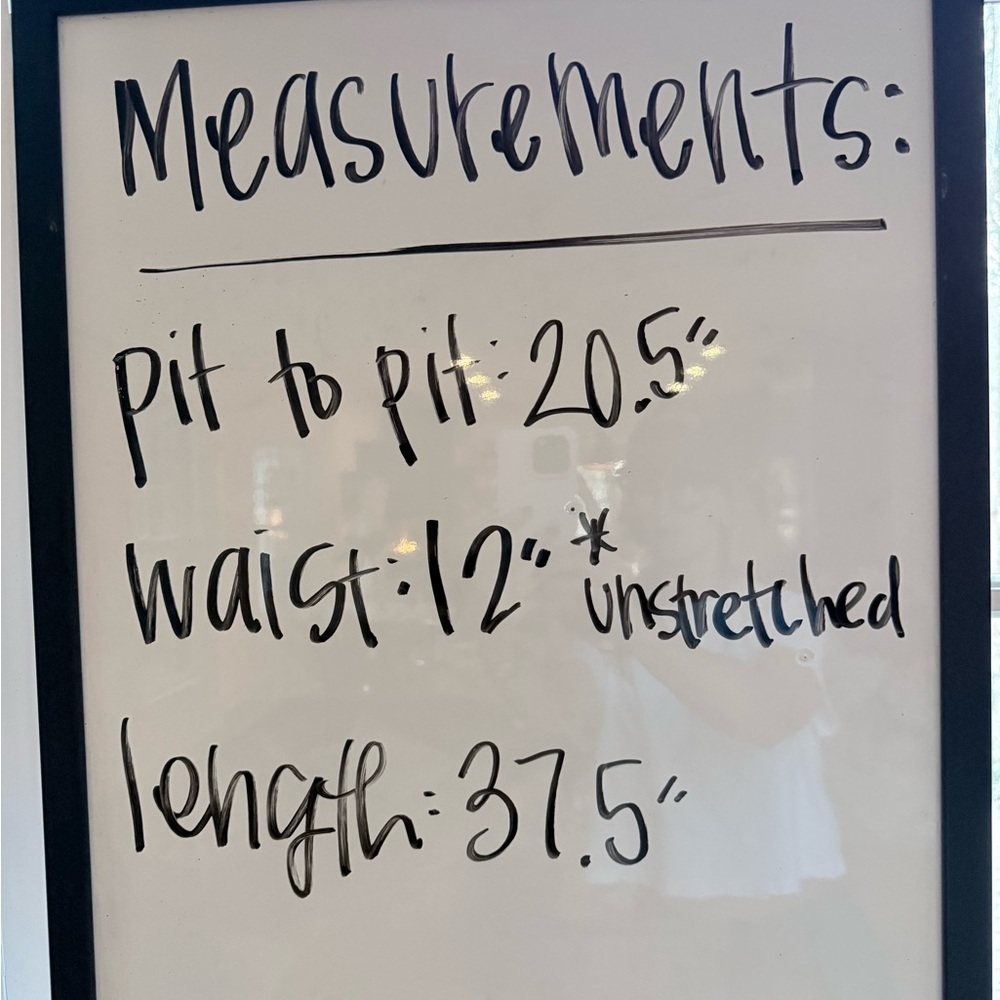 Measurements:
pit to pit: 20.5"
waist: 12" *unstretched
length: 37.5"